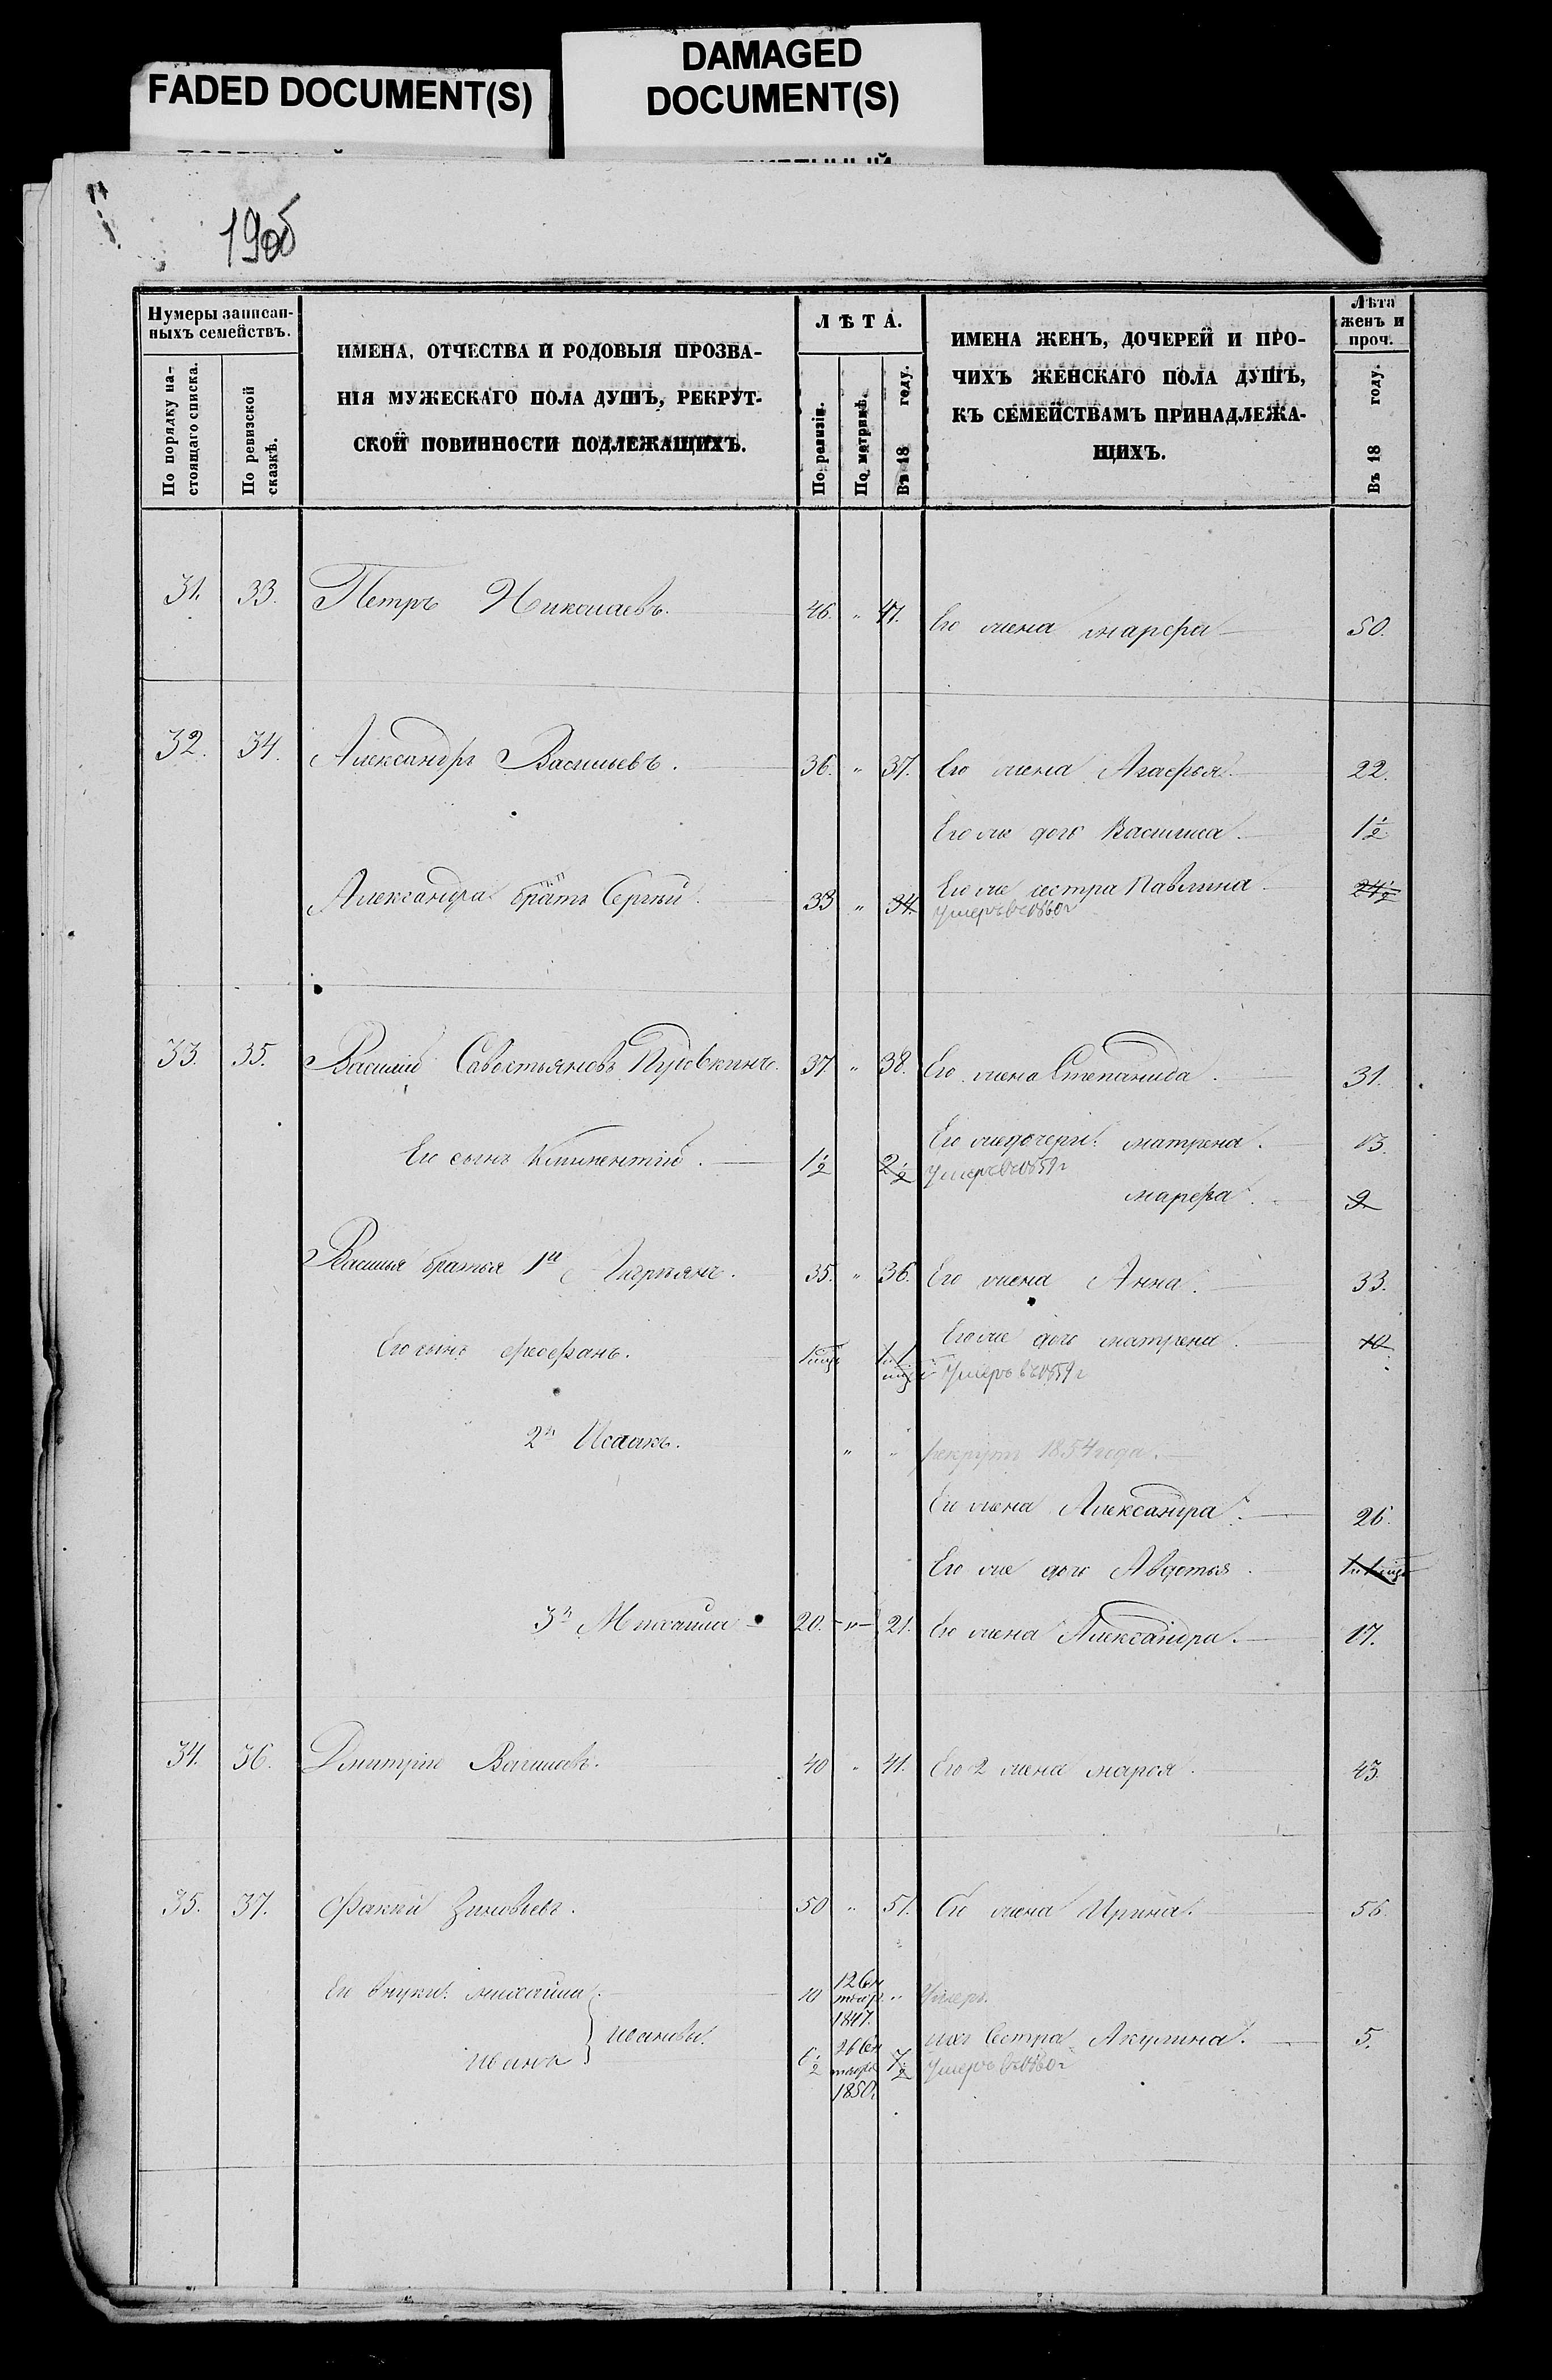 FADED DOCUMENT(S)
DAMAGED
DOCUMENT(S)
190б
Нумеры записан-
ныхъ семействъ.
По порядку на-
стоящаго списка.
По ревизской
сказкѣ.
ИМЕНА, ОТЧЕСТВА И РОДОВЫЯ ПРОЗВА-
НІЯ МУЖЕСКАГО ПОЛА ДУШЪ, РЕКРУТ-
СКОЙ ПОВИННОСТИ ПОДЛЕЖАЩИХЪ.
ЛѢТА.
По ревизіи.
По метрикѣ.
Въ 18 году.
ИМЕНА ЖЕНЪ, ДОЧЕРЕЙ И ПРО-
ЧИХЪ ЖЕНСКАГО ПОЛА ДУШЪ,
КЪ СЕМЕЙСТВАМЪ ПРИНАДЛЕЖА-
ЩИХЪ.
Лѣта
женъ и
проч.
Въ 18 году.
31. 33. Петръ Николаевъ. 46. " 47. Его жена Марфа 50.
32. 34. Александръ Васильевъ. 36. " 37. Его жена Агафья 22.
Его же дочь Василиса. 1 1/2
Александра братъ Сергѣй. 33 " 34. Его же сестра Павлина 24 1/2
Умеръ въ 1860 г
33. 35. Василій Савостьяновъ Пуговкинъ. 37 " 38. Его жена Степанида. 31.
Его сынъ Климентій. 1 1/2 2 1/2 Его же дочери: Матрена. 13.
Умеръ въ 1859 г
Марфа. 9
Василья братья 1й 35. " 36. Его жена Анна. 33.
Его сынъ Феофанъ. Его же дочь Матрена. 10
Умеръ въ 1859 г
2й Исаакъ. " " рекрутъ 1854 года.
Его жена Александра. 26.
Его же дочь Авдотья.
3й Михаила 20. " 21. Его жена Александра. 17.
34. 36. Дмитрій Васильевъ. 40 " 41. Его 2 жена Марья. 43.
35. 37. Факѣй Зиновьевъ. 50 " 51. Его жена Ирина. 56.
Его внуки: Михайла 10 1847. " Умеръ.
Ивановы.
Иванъ 6 1/2 1850. 7 1/2 ихъ Сестра Акулина. 5.
Умеръ въ 1860 г